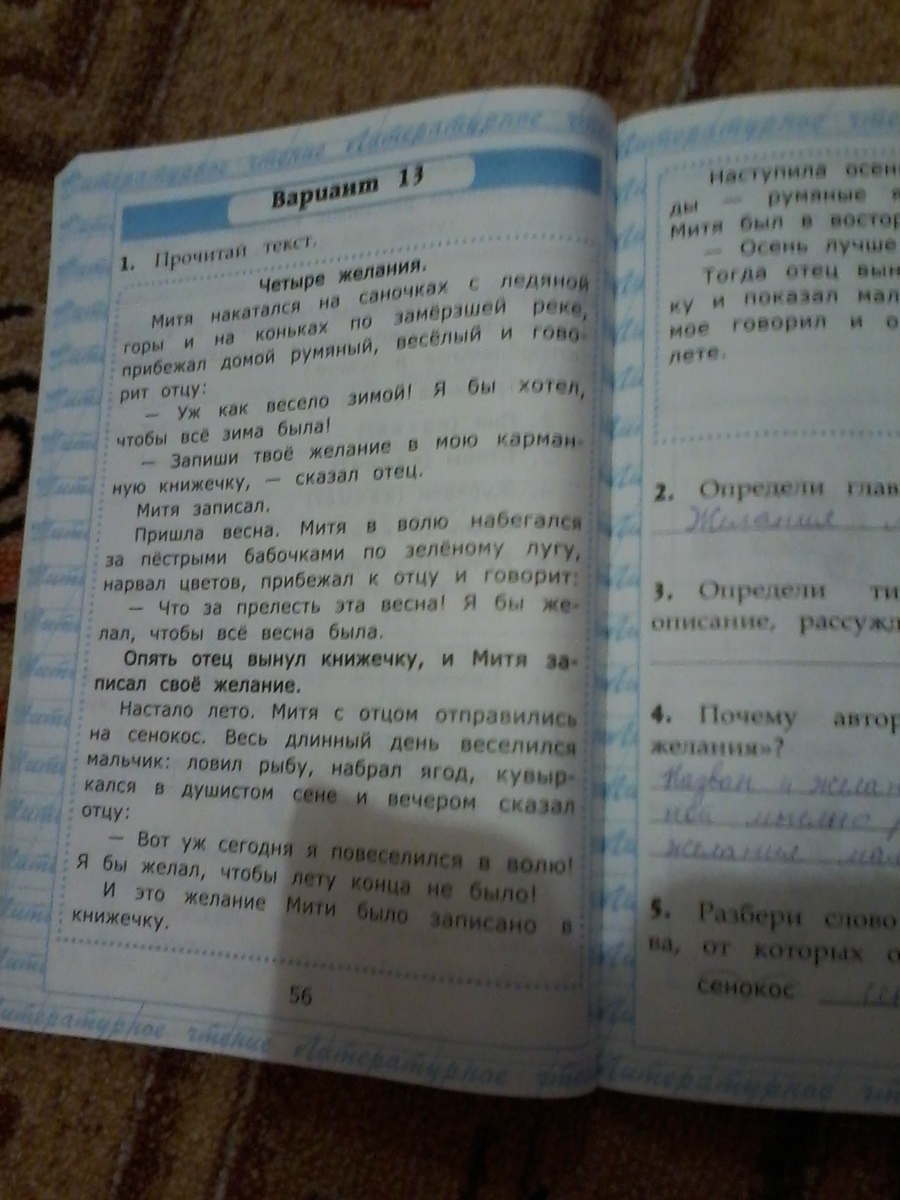 Литературное чтение Литературное
Вариант 13
1. Прочитай текст.
Четыре желания.
Митя накатался на саночках с ледяной
горы и на коньках по замёрзшей реке,
прибежал домой румяный, весёлый и гово-
рит отцу:
— Уж как весело зимой! Я бы хотел,
чтобы всё зима была!
— Запиши твоё желание в мою карман-
ную книжечку, — сказал отец.
Митя записал.
Пришла весна. Митя в волю набегался
за пёстрыми бабочками по зелёному лугу,
нарвал цветов, прибежал к отцу и говорит:
— Что за прелесть эта весна! Я бы же-
лал, чтобы всё весна была.
Опять отец вынул книжечку, и Митя за-
писал своё желание.
Настало лето. Митя с отцом отправились
на сенокос. Весь длинный день веселился
мальчик: ловил рыбу, набрал ягод, кувыр-
кался в душистом сене и вечером сказал
отцу:
— Вот уж сегодня я повеселился в волю!
Я бы желал, чтобы лету конца не было!
И это желание Мити было записано в
книжечку.
56
Литературное чтение Литературное
Литературное чтение
Наступила осен
ды — румяные
Митя был в востор
— Осень лучше
Тогда отец вын
ку и показал мал
мое говорил и о
лете.
2. Определи глав
Желания
3. Определи ти
описание, рассужд
4. Почему автор
желания»?
желания
5. Разбери слово
ва, от которых о
сенокос
Литературное